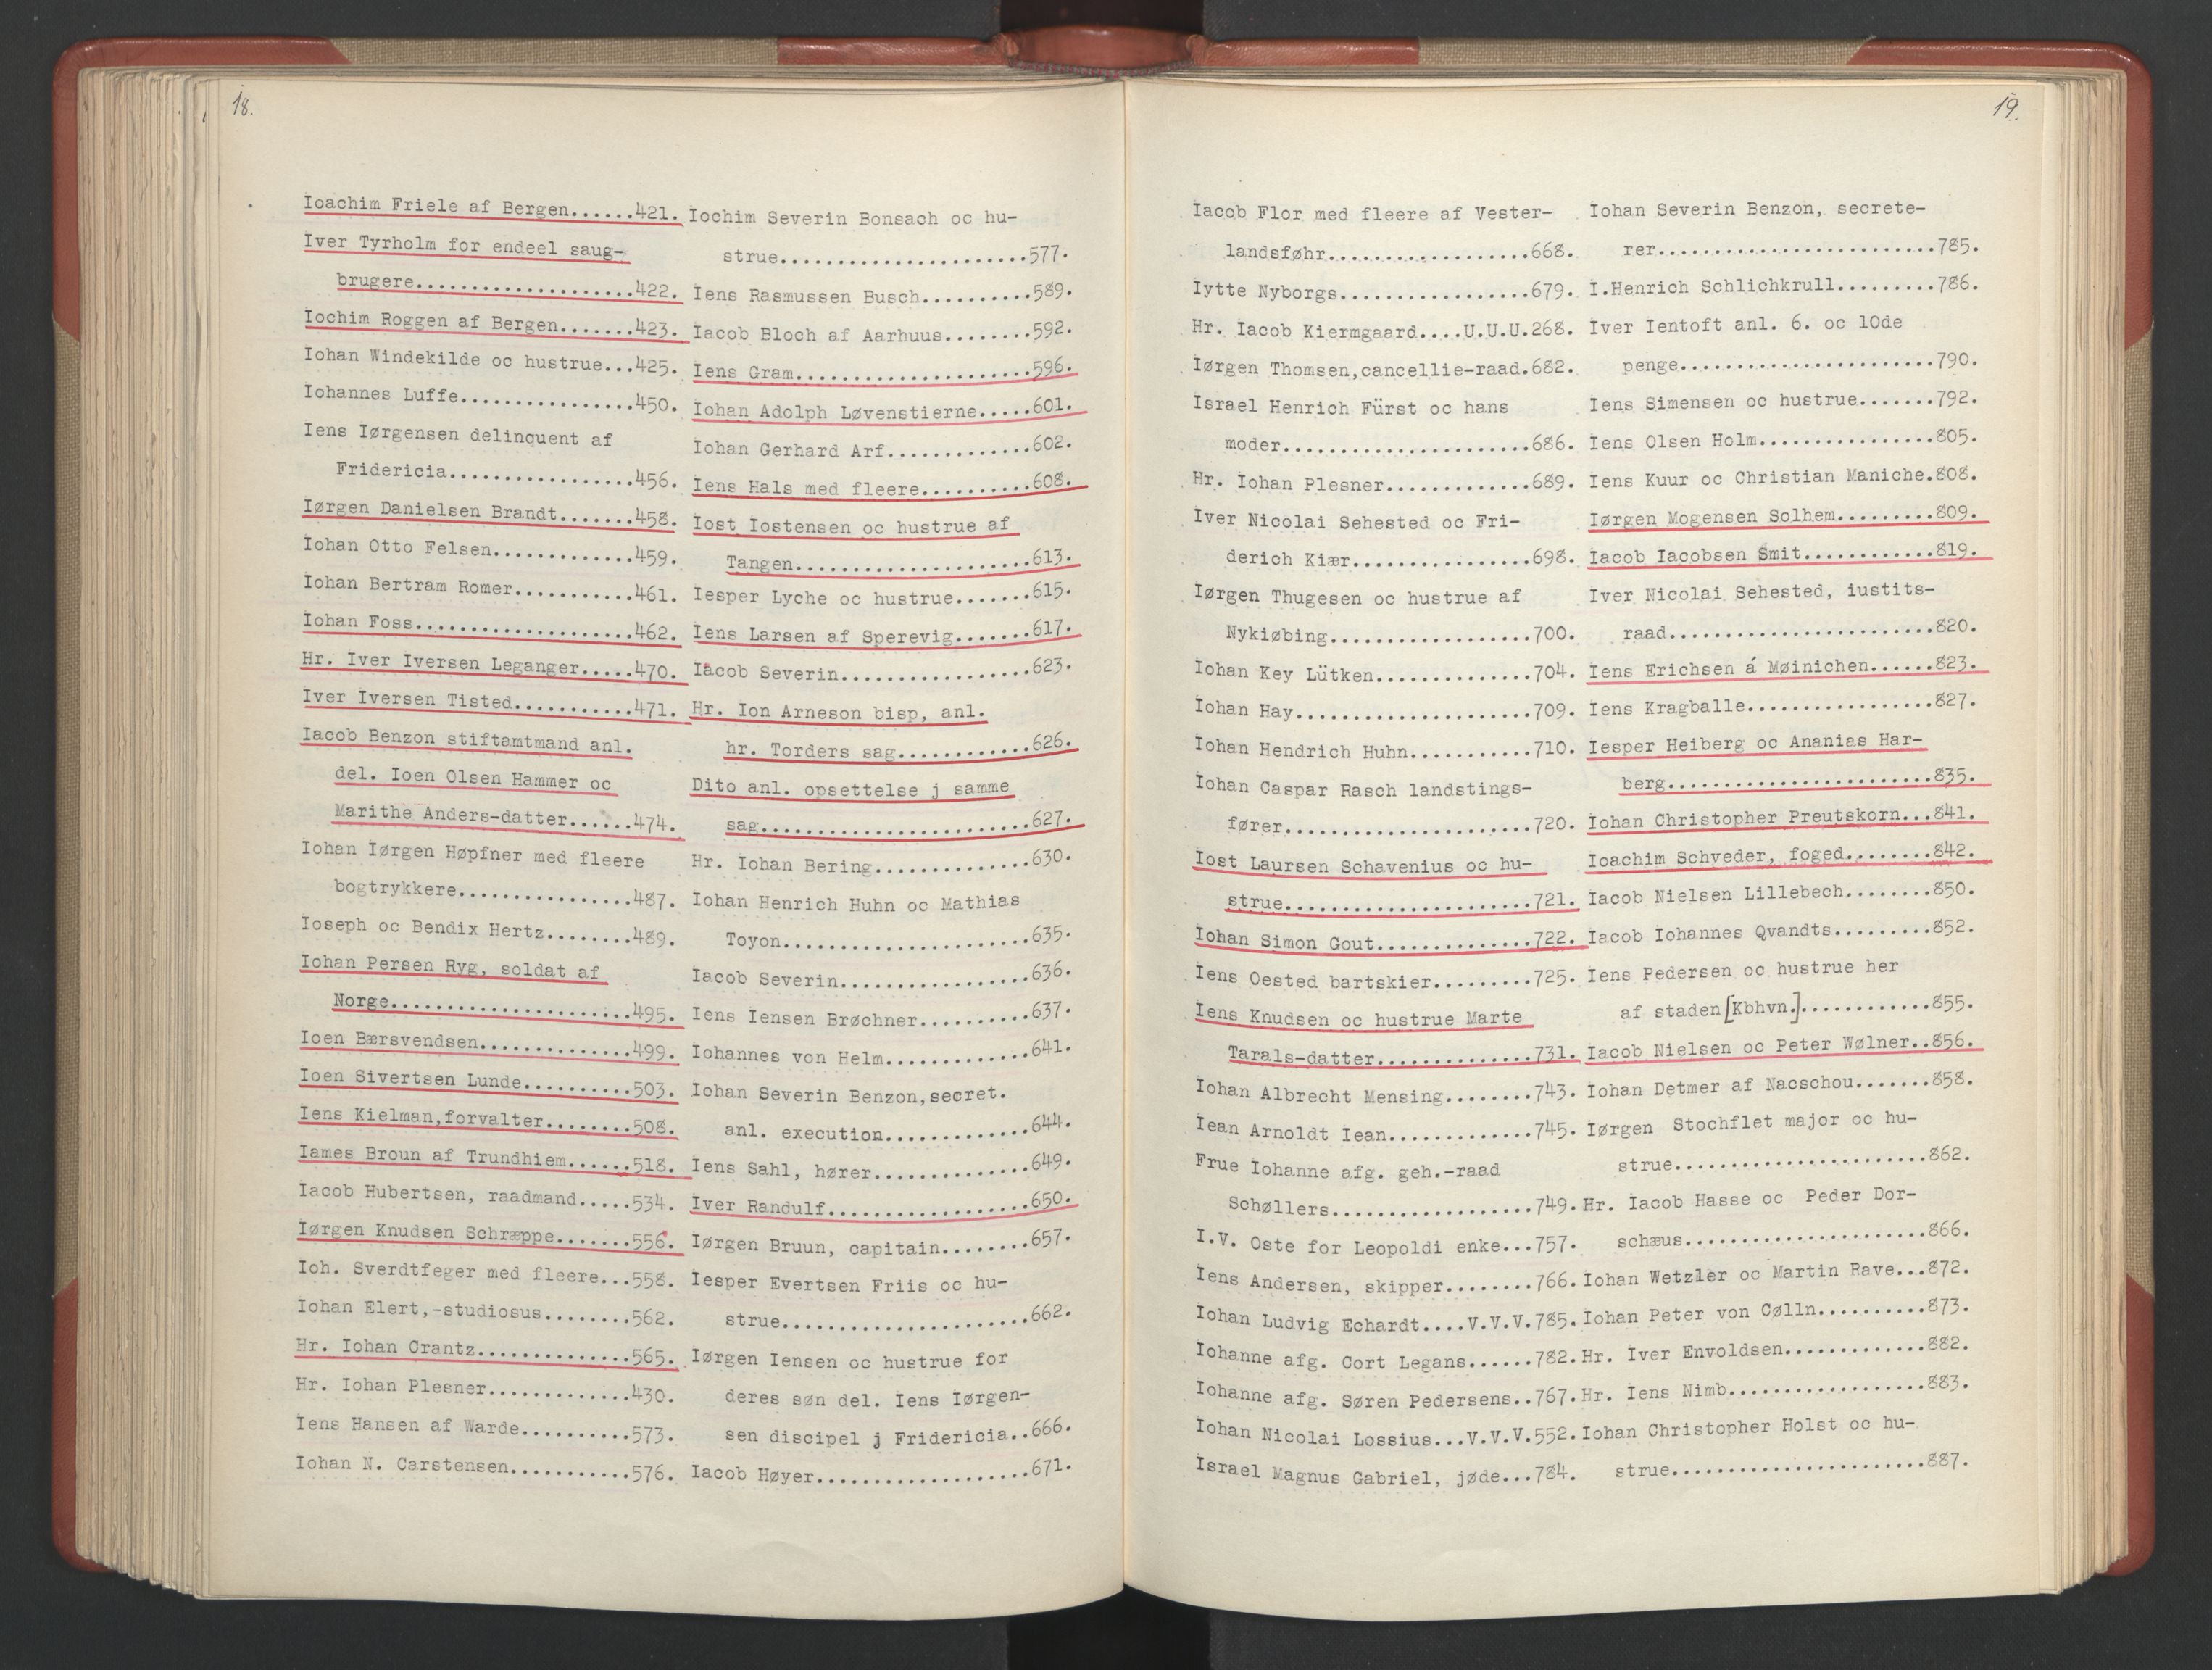 18.
Ioachim Friele af Bergen......421.
Iver Tyrholm for endeel saug-
brugere...................422.
Iochim Roggen af Bergen.......423.
Iohan Windekilde oc hustrue...425.
Iohannes Luffe...............450.
Iens Iørgensen delinquent af
Fridericia................456.
Iørgen Danielsen Brandt.......458.
Iohan Otto Felsen............459.
Iohan Bertram Romer..........461.
Iohan Foss...................462.
Hr. Iver Iversen Leganger.....470.
Iver Iversen Tisted...........471.
Iacob Benzon stiftamtmand anl.
del. Ioen Olsen Hammer oc
Marithe Anders-datter......474.
Iohan Iørgen Høpfner med fleere
bogtrykkere...............487.
Ioseph oc Bendix Hertz........489.
Iohan Persen Ryg, soldat af
Norge.....................495.
Ioen Bærsvendsen..............499.
Ioen Sivertsen Lunde..........503.
Iens Kielman,forvalter........508.
Iames Broun af Trundhiem......518.
Iacob Hubertsen, raadmand.....534.
Iørgen Knudsen Schræppe.......556.
Ioh. Sverdtfeger med fleere...558.
Iohan Elert,-studiosus........562.
Hr. Iohan Crantz..............565.
Hr. Iohan Plesner.............430.
Iens Hansen af Warde..........573.
Iohan N. Carstensen...........576.
Iochim Severin Bonsach oc hu-
strue......................577.
Iens Rasmussen Busch..........589.
Iacob Bloch af Aarhuus........592.
Iens Gram.....................596.
Iohan Adolph Løvenstierne.....601.
Iohan Gerhard Arf.............602.
Iens Hals med fleere..........608.
Iost Iostensen oc hustrue af
Tangen.....................613.
Iesper Lyche oc hustrue.......615.
Iens Larsen af Sperevig.......617.
Iacob Severin.................623.
Hr. Ion Arneson bisp, anl.
hr. Torders sag............626.
Dito anl. opsettelse j samme
sag........................627.
Hr. Iohan Bering..............630.
Iohan Henrich Huhn oc Mathias
Toyon......................635.
Iacob Severin.................636.
Iens Iensen Brøchner..........637.
Iohannes von Helm.............641.
Iohan Severin Benzon,secret.
anl. execution.............644.
Iens Sahl, hører..............649.
Iver Randulf..................650.
Iørgen Bruun, capitain........657.
Iesper Evertsen Friis oc hu-
strue......................662.
Iørgen Iensen oc hustrue for
deres søn del. Iens Iørgen-
sen discipel j Fridericia..666.
Iacob Høyer...................671.
19.
Iacob Flor med fleere af Vester-
landsføhr..................668.
Iytte Nyborgs.................679.
Hr. Iacob Kiermgaard....U.U.U.268.
Iørgen Thomsen,cancellie-raad.682.
Israel Henrich Fürst oc hans
moder......................686.
Hr. Iohan Plesner.............689.
Iver Nicolai Sehested oc Fri-
derich Kiær................698.
Iørgen Thugesen oc hustrue af
Nykiøbing..................700.
Iohan Key Lütken..............704.
Iohan Hay.....................709.
Iohan Hendrich Huhn...........710.
Iohan Caspar Rasch landstings-
fører......................720.
Iost Laursen Schavenius oc hu-
strue......................721.
Iohan Simon Gout..............722.
Iens Oested bartskier.........725.
Iens Knudsen oc hustrue Marte
Tarals-datter..............731.
Iohan Albrecht Mensing........743.
Iean Arnoldt Iean.............745.
Frue Iohanne afg. geh.-raad
Schøllers..................749.
I.V. Oste for Leopoldi enke...757.
Iens Andersen, skipper........766.
Iohan Ludvig Echardt....V.V.V.785.
Iohanne afg. Cort Legans......782.
Iohanne afg. Søren Pedersens..767.
Iohan Nicolai Lossius...V.V.V.552.
Israel Magnus Gabriel, jøde...784.
Iohan Severin Benzon, secrete-
rer........................785.
I.Henrich Schlichkrull.........786.
Iver Ientoft anl. 6. oc 10de
penge......................790.
Iens Simensen oc hustrue.......792.
Iens Olsen Holm................805.
Iens Kuur oc Christian Maniche.808.
Iørgen Mogensen Solhem.........809.
Iacob Iacobsen Smit............819.
Iver Nicolai Sehested, iustits-
raad.......................820.
Iens Erichsen á Møinichen......823.
Iens Kragballe.................827.
Iesper Heiberg oc Ananias Har-
berg.......................835.
Iohan Christopher Preutskorn...841.
Ioachim Schveder, foged........842.
Iacob Nielsen Lillebech........850.
Iacob Iohannes Qvandts.........852.
Iens Pedersen oc hustrue her
af staden[Kbhvn.]...........855.
Iacob Nielsen oc Peter Wølner..856.
Iohan Detmer af Nacschou.......858.
Iørgen Stochflet major oc hu-
strue......................862.
Hr. Iacob Hasse oc Peder Dor-
schæus.....................866.
Iohan Wetzler oc Martin Rave...872.
Iohan Peter von Cølln..........873.
Hr. Iver Envoldsen.............882.
Hr. Iens Nimb..................883.
Iohan Christopher Holst oc hu-
strue......................887.